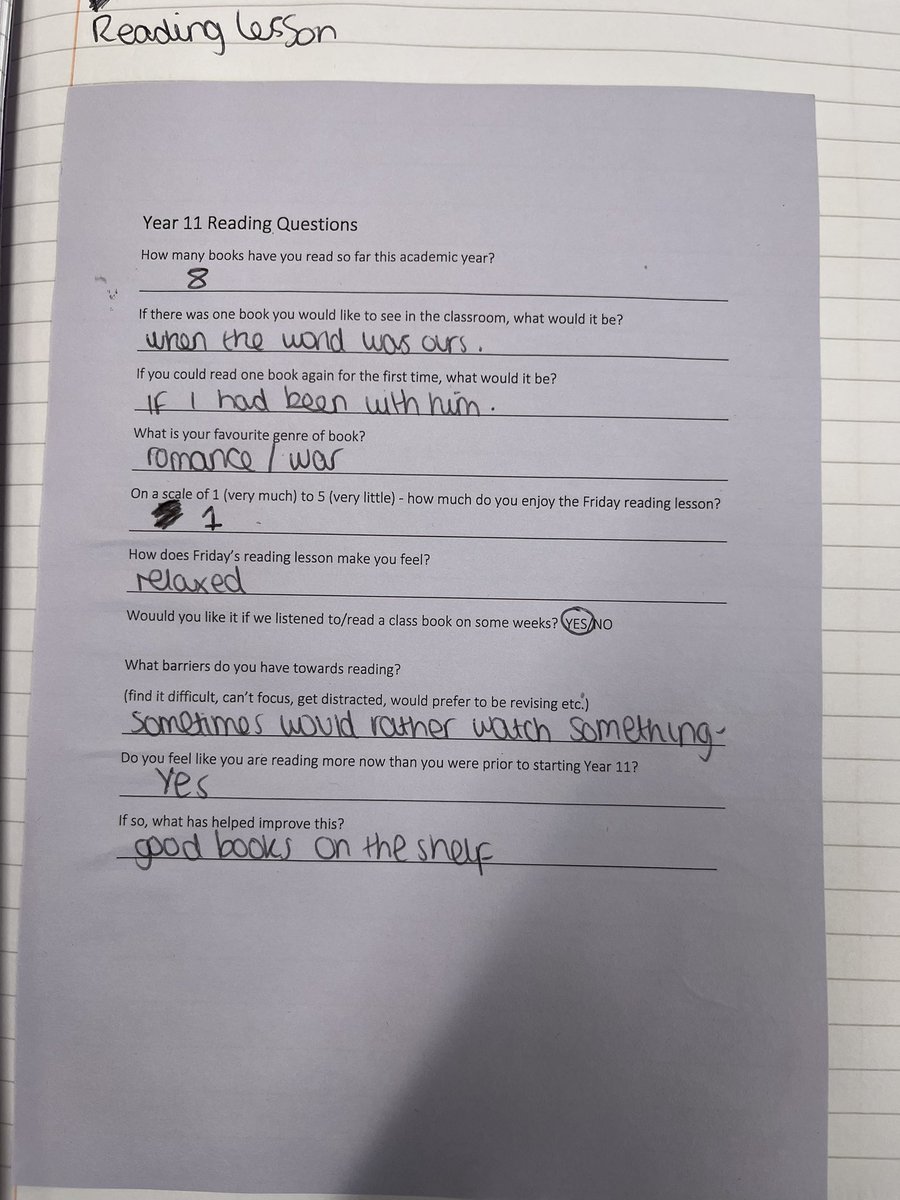 Reading lesson
Year 11 Reading Questions
How many books have you read so far this academic year?
8
If there was one book you would like to see in the classroom, what would it be?
when the world was ours.
If you could read one book again for the first time, what would it be?
If I had been with him.
What is your favourite genre of book?
romance / war
On a scale of 1 (very much) to 5 (very little) - how much do you enjoy the Friday reading lesson?
1
How does Friday's reading lesson make you feel?
relaxed
Wouuld you like it if we listened to/read a class book on some weeks? YES/NO
What barriers do you have towards reading?
(find it difficult, can't focus, get distracted, would prefer to be revising etc.)
sometimes would rather watch something
Do you feel like you are reading more now than you were prior to starting Year 11?
Yes
If so, what has helped improve this?
good books on the shelf